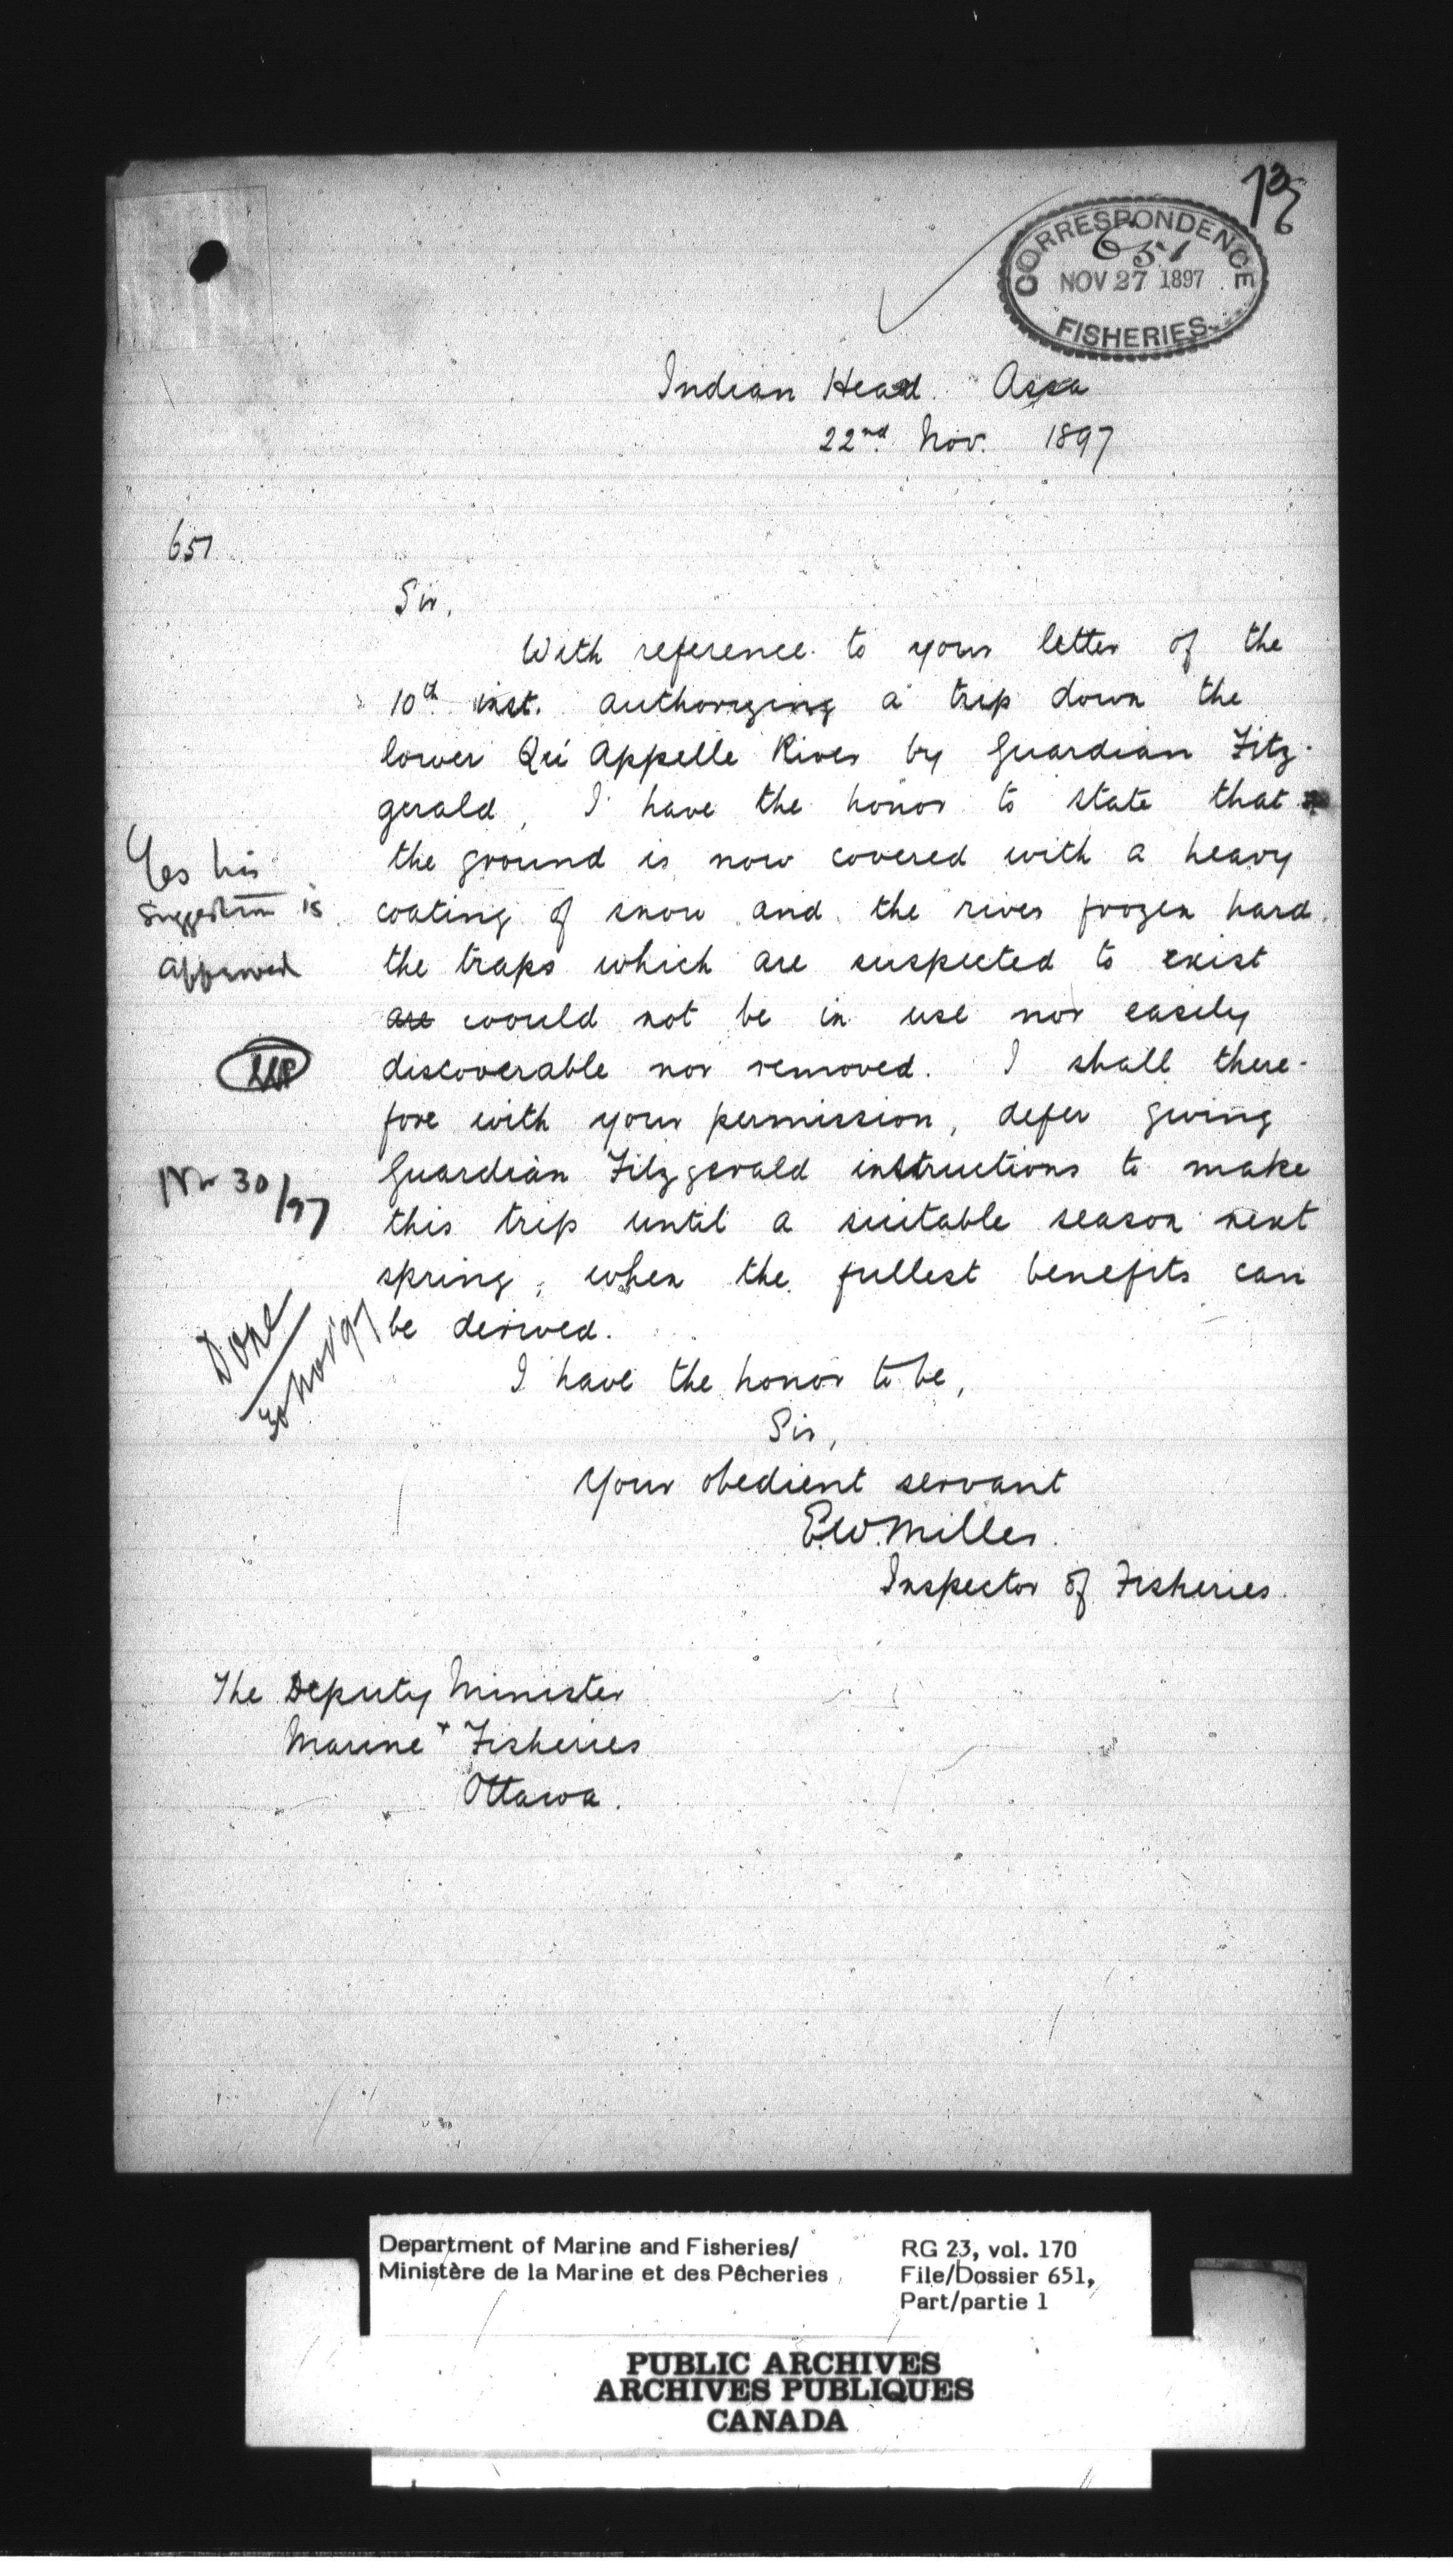 CORRESPONDENCE
651
NOV 27 1897
FISHERIES
Indian Head. Assa
22nd. Nov. 1897
651
Sir,
With reference to your letter of the
10th inst. authorizing a trip down the
lower Qu'Appelle River by Guardian Fitz-
gerald, I have the honor to state that
the ground is now covered with a heavy
coating of snow and the river frozen hard.
the traps which are suspected to exist
are would not be in use nor easily
discoverable nor removed. I shall there-
fore with your permission, defer giving
Guardian Fitzgerald instructions to make
this trip until a suitable season next
spring, when the fullest benefits can
be derived.
I have the honor to be,
Sir,
Your obedient servant
E.W. Miller.
Inspector of Fisheries.
The Deputy Minister
Marine + Fisheries
Ottawa.
Yes his
suggestion is
approved
30/97
Done
30 Nov '97
Department of Marine and Fisheries/
Ministère de la Marine et des Pêcheries
RG 23, vol. 170
File/Dossier 651,
Part/partie 1
PUBLIC ARCHIVES
ARCHIVES PUBLIQUES
CANADA